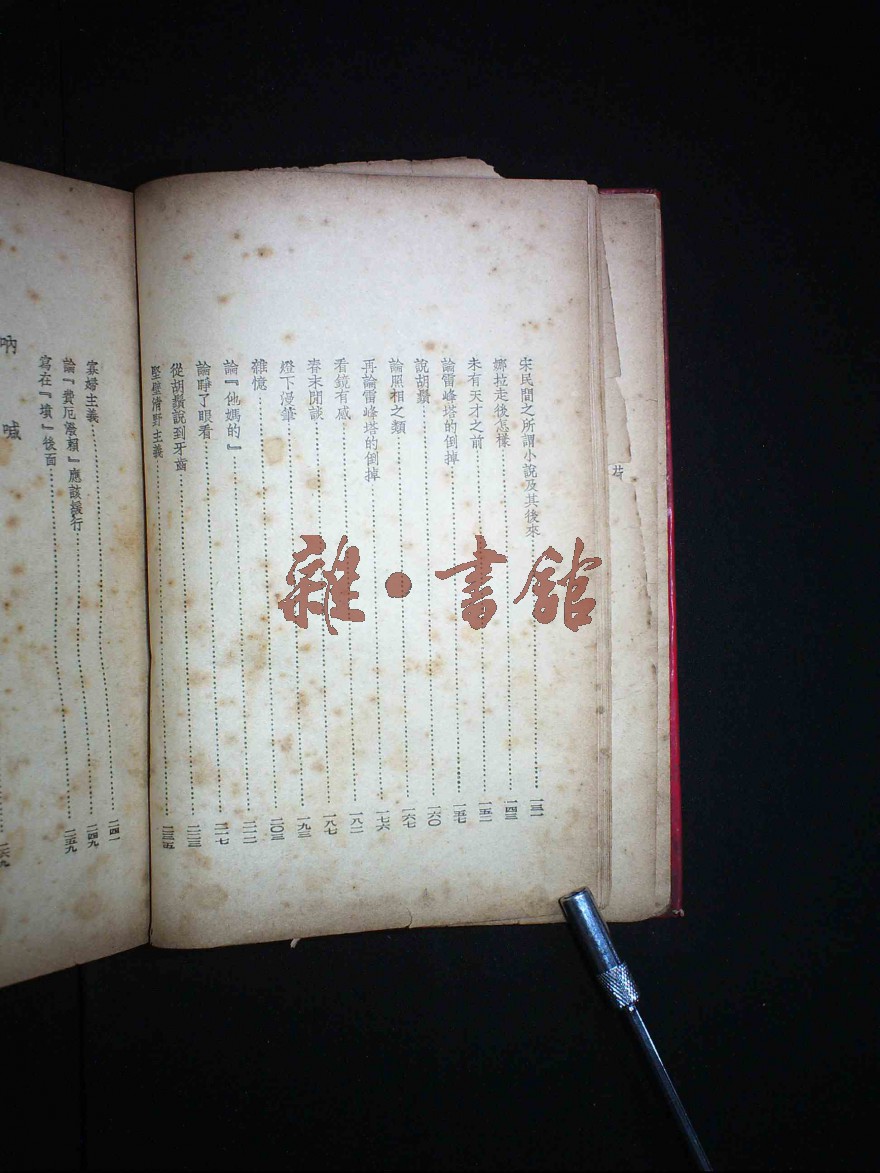 宋民間之所謂小說及其後來……一三一
娜拉走後怎樣……一四三
未有天才之前……一五二
論雷峰塔的倒掉……一五七
說胡鬚……一六〇
論照相之類……一六七
再論雷峰塔的倒掉……一七六
看鏡有感……一八二
春末閒談……一八七
燈下漫筆……一九三
雜憶……二〇三
論『他媽的』……二一二
論睜了眼看……二一七
從胡鬚說到牙齒……二二三
堅壁清野主義……二三五
寡婦主義……二四一
論『費厄潑賴』應該緩行……二四九
寫在『墳』後面……二五九
吶喊
雜·書館